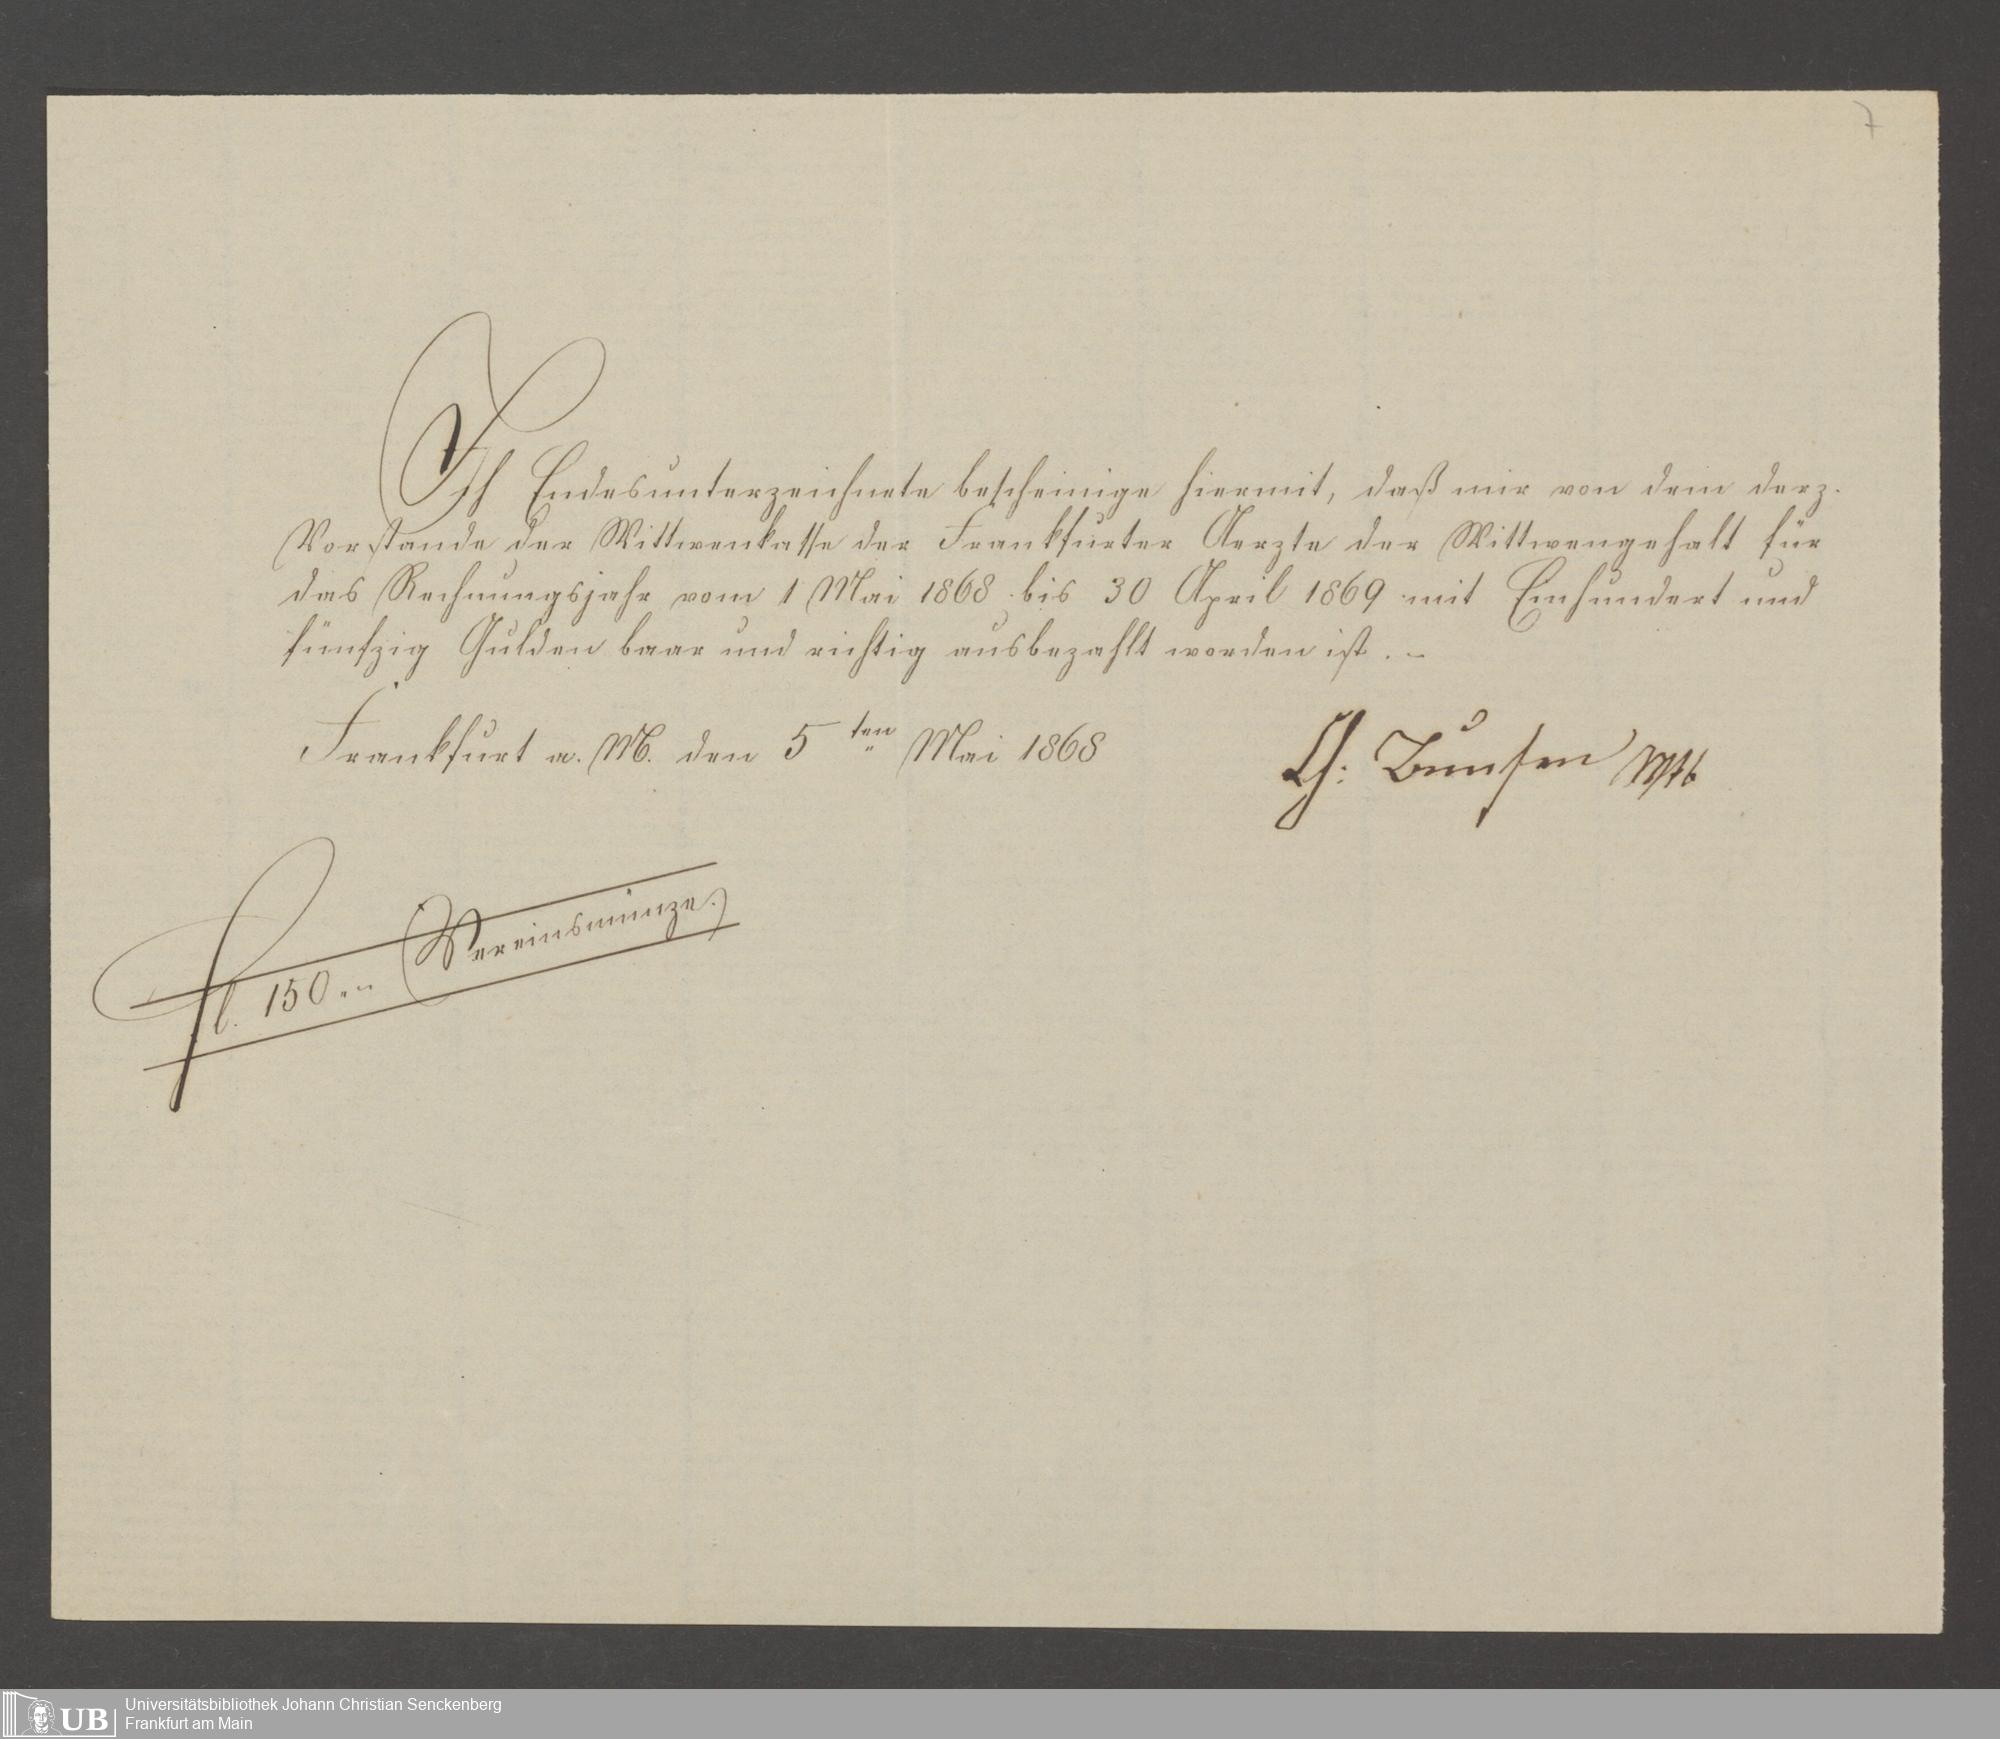 7
Ich Endesunterzeichnete bescheinige hiermit, daß mir von dem derz.
Vorstande der Wittwenkasse der Frankfurter Aerzte der Wittwengehalt für
das Rechnungsjahr vom 1 Mai 1868 bis 30 April 1869 mit Einhundert und
fünfzig Gulden baar und richtig ausbezahlt worden ist. –
Frankfurt a. M. den 5ten Mai 1868
Ch: Bunsen Wtb
fl. 150 „ „ (Vereinsmünze.)
UB
Universitätsbibliothek Johann Christian Senckenberg
Frankfurt am Main